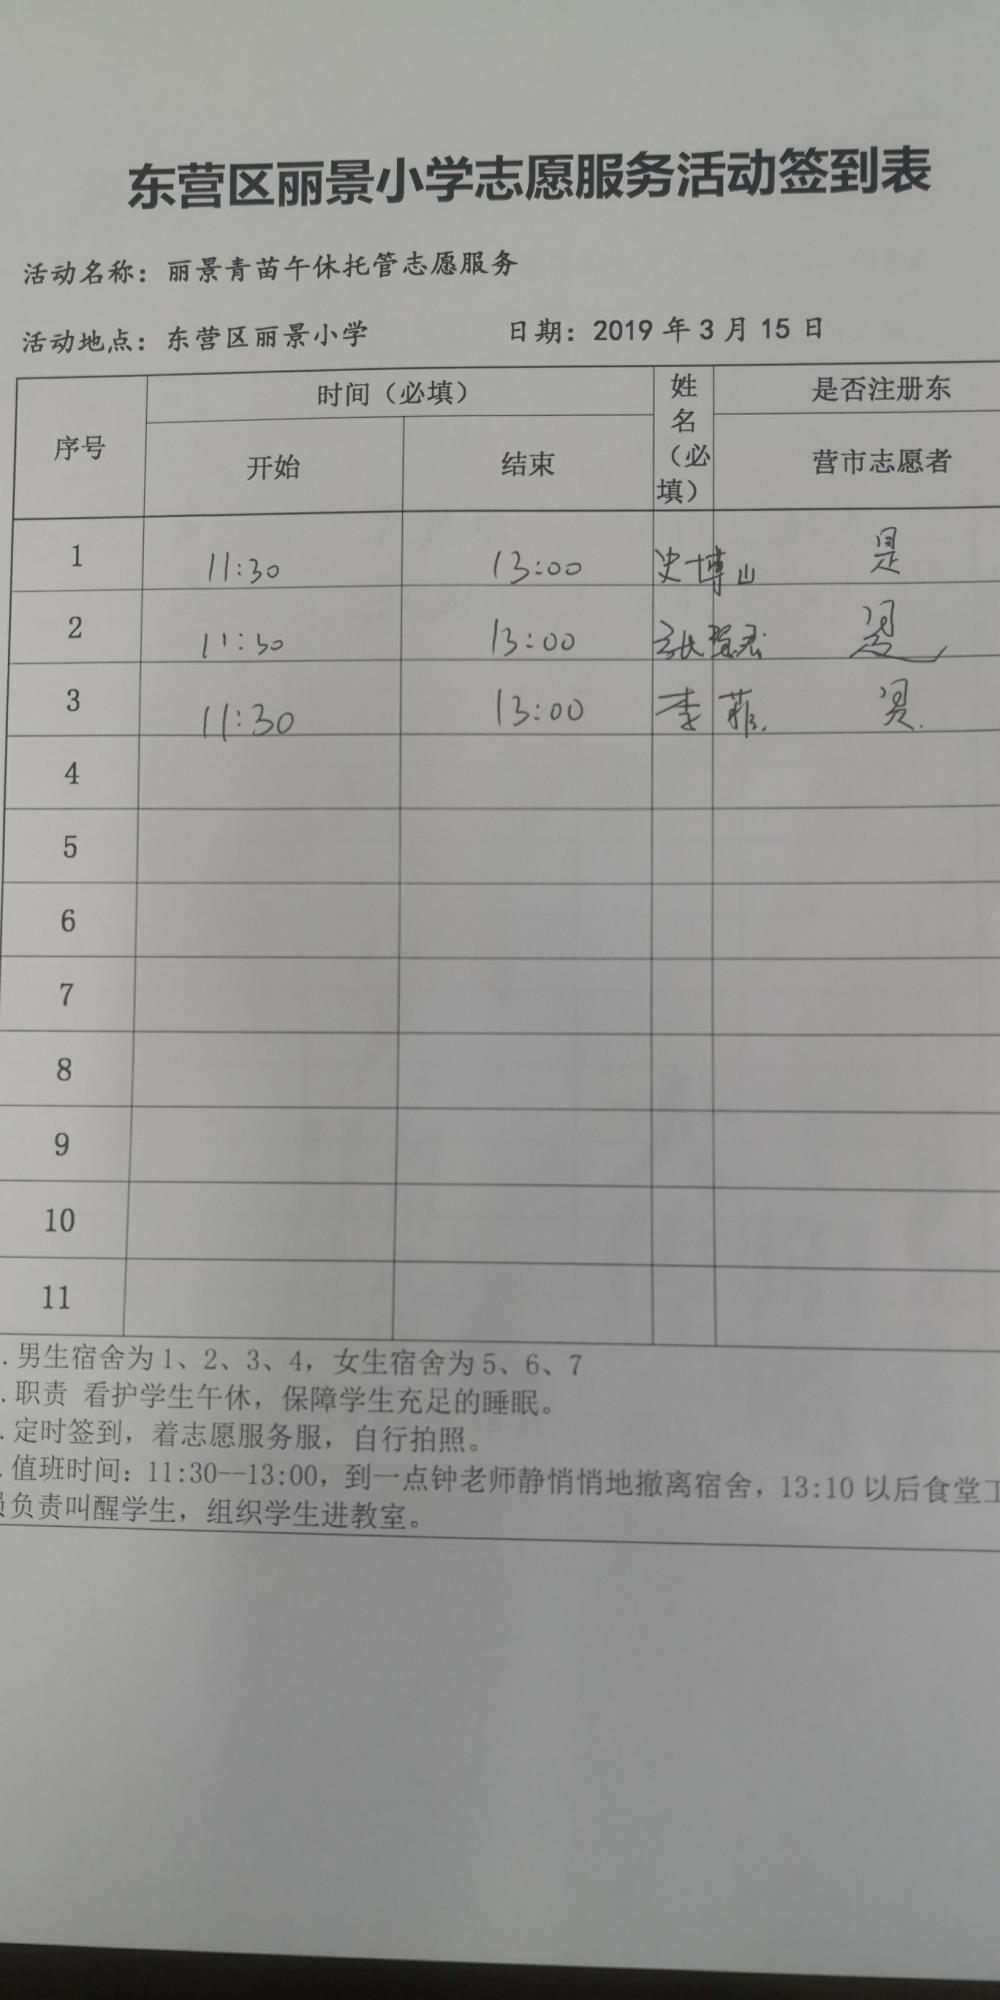 东营区丽景小学志愿服务活动签到表
活动名称：丽景青苗午休托管志愿服务
活动地点：东营区丽景小学 日期：2019 年 3 月 15 日
序号 时间（必填） 姓名（必填） 是否注册东营市志愿者
开始 结束
1 11:30 13:00 史博山 是
2 11:30 13:00 张 是
3 11:30 13:00 李菲 是
4
5
6
7
8
9
10
11
.男生宿舍为 1、2、3、4，女生宿舍为 5、6、7
.职责 看护学生午休，保障学生充足的睡眠。
.定时签到，着志愿服务服，自行拍照。
.值班时间：11:30--13:00，到一点钟老师静悄悄地撤离宿舍，13:10 以后食堂工
员负责叫醒学生，组织学生进教室。